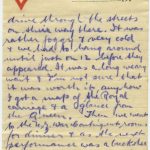 drive through the streets
on their way here. It was
rather foggy & very cold
& we had to hang around
until just on 12 before they
appeared. It was a long weary
wait & I'm not sure that it
was worth it anyhow
I got a of the Royal
carriage & a glance from
the Queen. Then we went
to the for dinner & as the next
performance was a